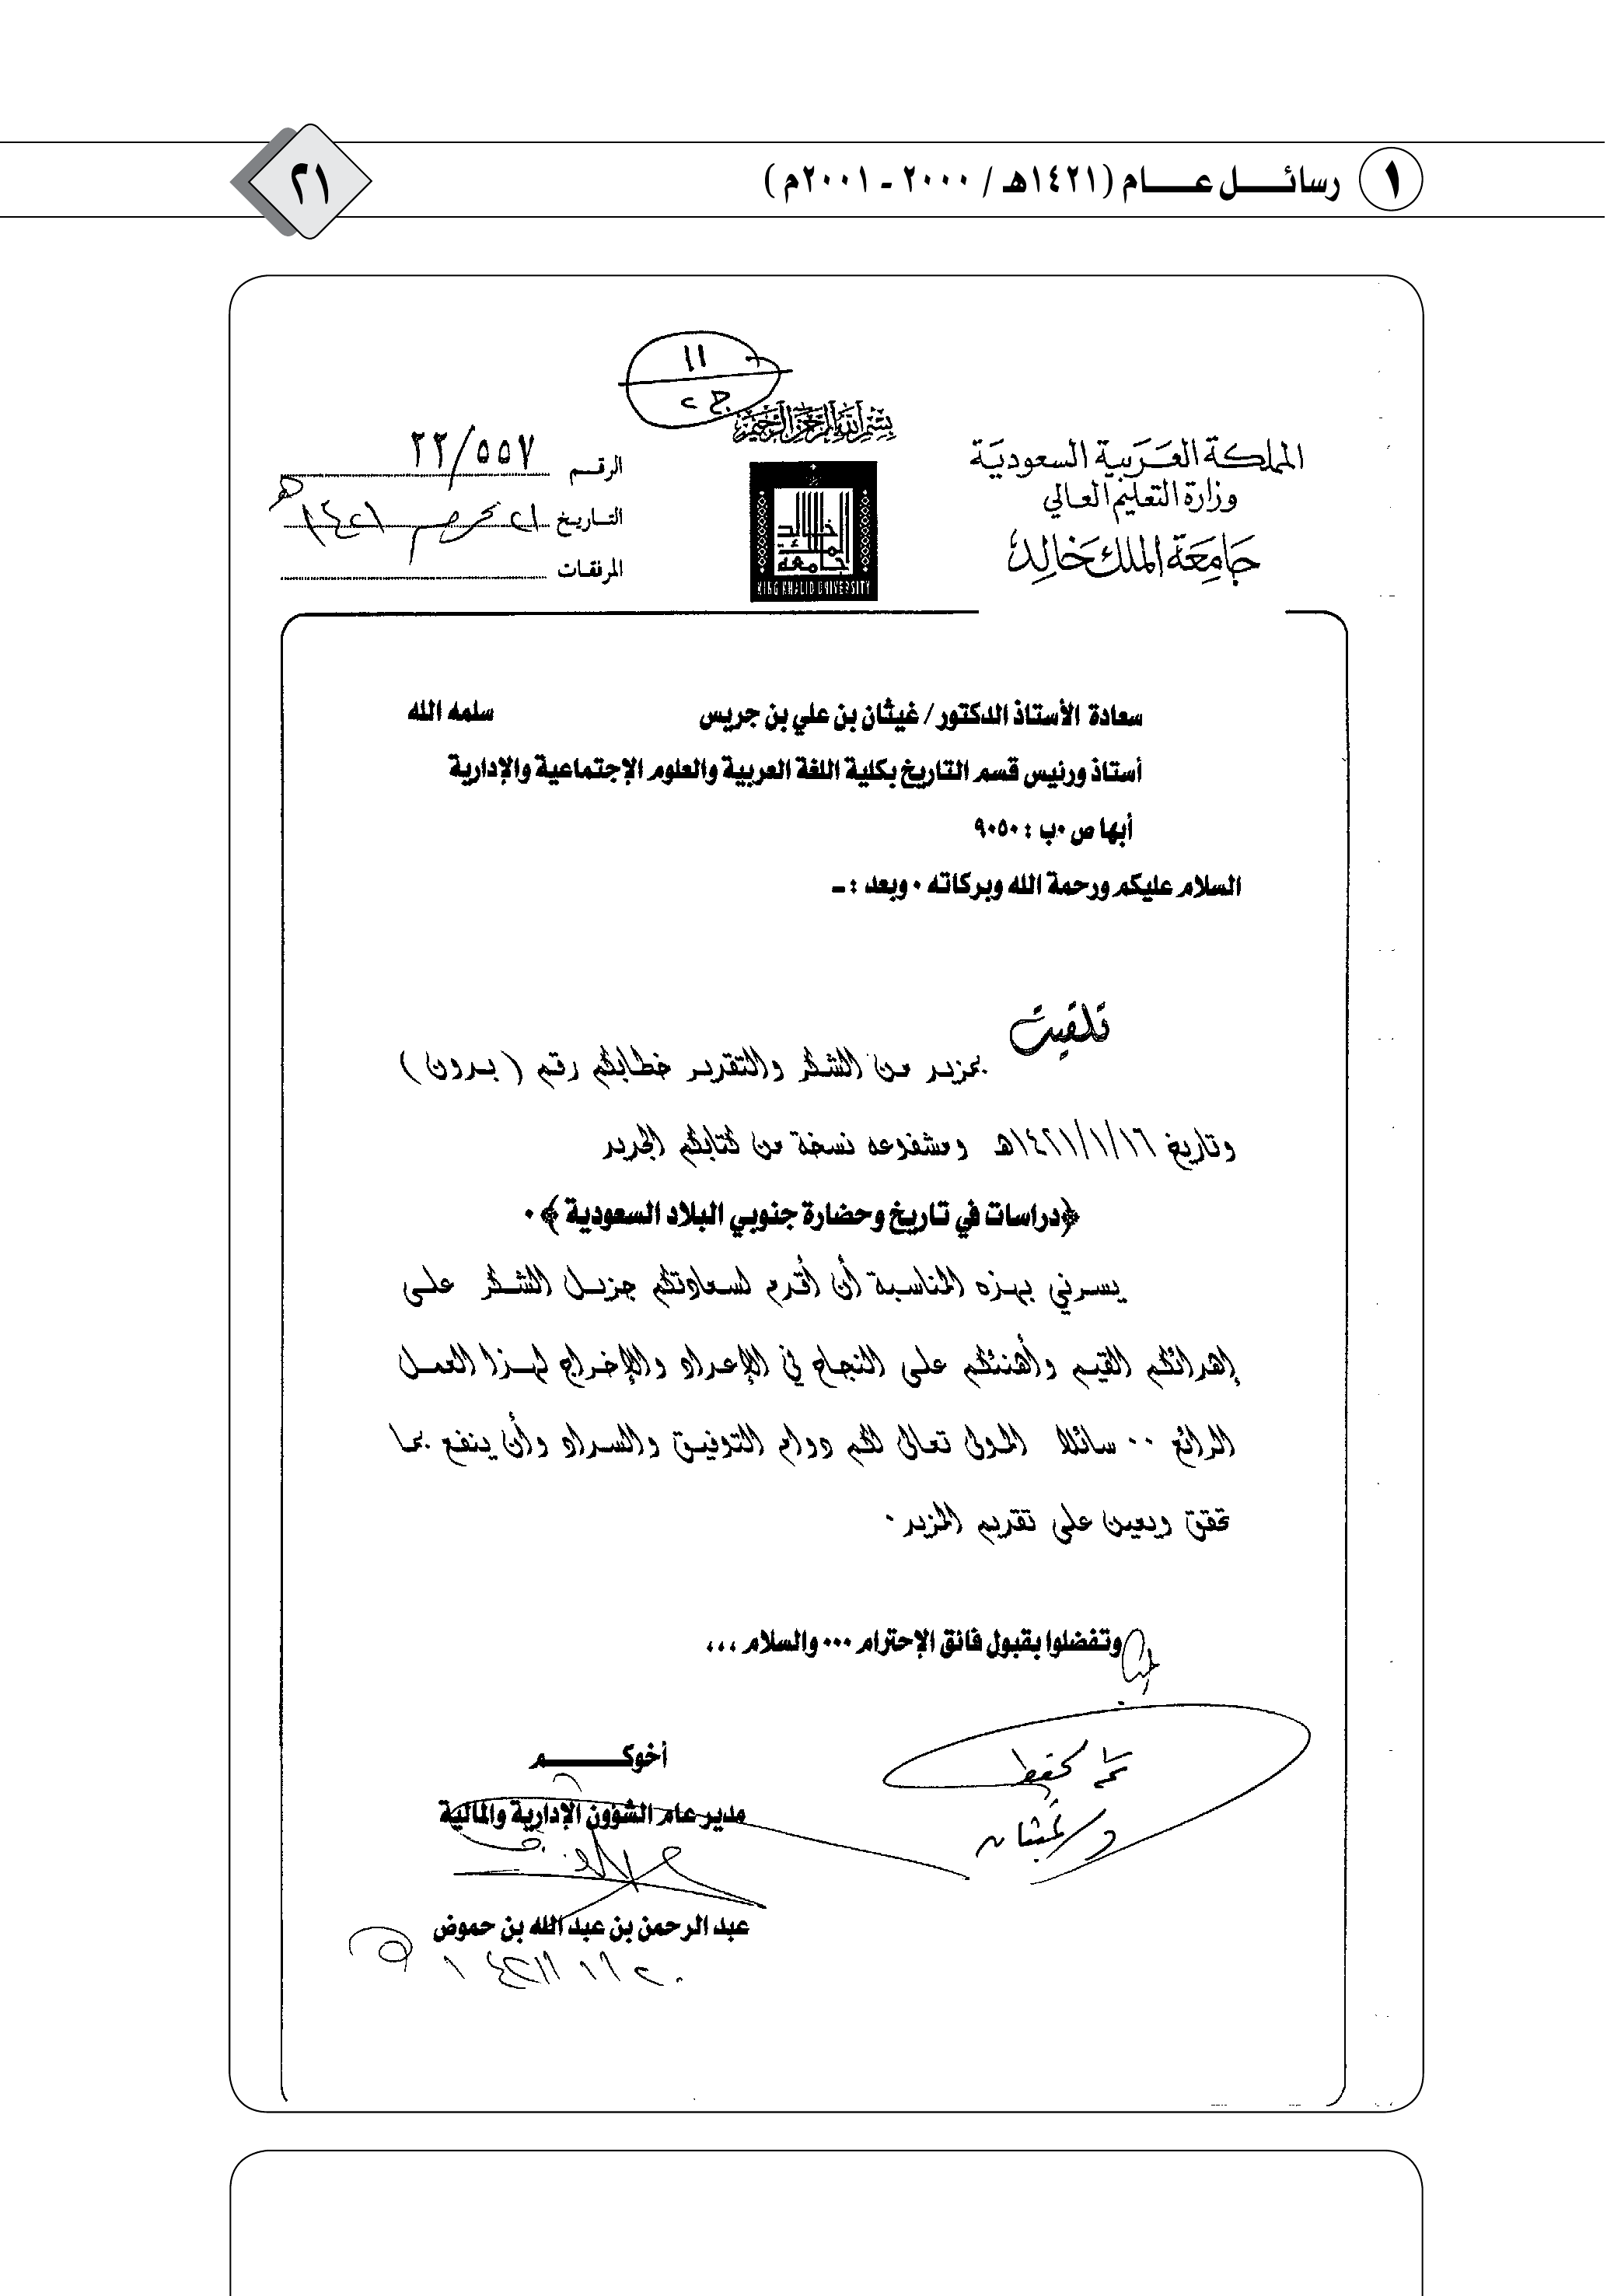 ١ رسائل عام (١٤٢١هـ / ٢٠٠٠ - ٢٠٠١م)
٢١
١١
ج ٢
بسم الله الرحمن الرحيم
المملكة العربية السعودية
وزارة التعليم العالي
جامعة الملك خالد
جامعة الملك خالد
KING KHALID UNIVERSITY
الرقم ٢٢/٥٥٧
التاريخ ٢١ محرم ١٤٢١هـ
المرفقات
سعادة الأستاذ الدكتور/ غيثان بن علي بن جريس سلمه الله
أستاذ ورئيس قسم التاريخ بكلية اللغة العربية والعلوم الإجتماعية والإدارية
أبها ص ٠ب : ٩٠٥٠
السلام عليكم ورحمة الله وبركاته ٠ وبعد : ــ
تلقيت
بمزيد من الشكر والتقدير خطابكم رقم ( بدون )
وتاريخ ١٤٢١/١/١٦هـ ومشفوعه نسخة من كتابكم الجديد
﴿دراسات في تاريخ وحضارة جنوبي البلاد السعودية ﴾ ٠
يسرني بهذه المناسبة أن أقدم لسعادتكم جزيل الشكر على
إهدائكم القيم وأهنئكم على النجاح في الإعداد والإخراج لهذا العمل
الرائع ٠٠ سائلا المولى تعالى لكم دوام التوفيق والسداد وأن ينفع بما
تحقق ويعين على تقديم المزيد ٠
وتفضلوا بقبول فائق الإحترام ٠٠٠ والسلام ،،،
أخوكم
مدير عام الشؤون الإدارية والمالية
عبد الرحمن بن عبد الله بن حموض
يحفظ
د/ غيثان